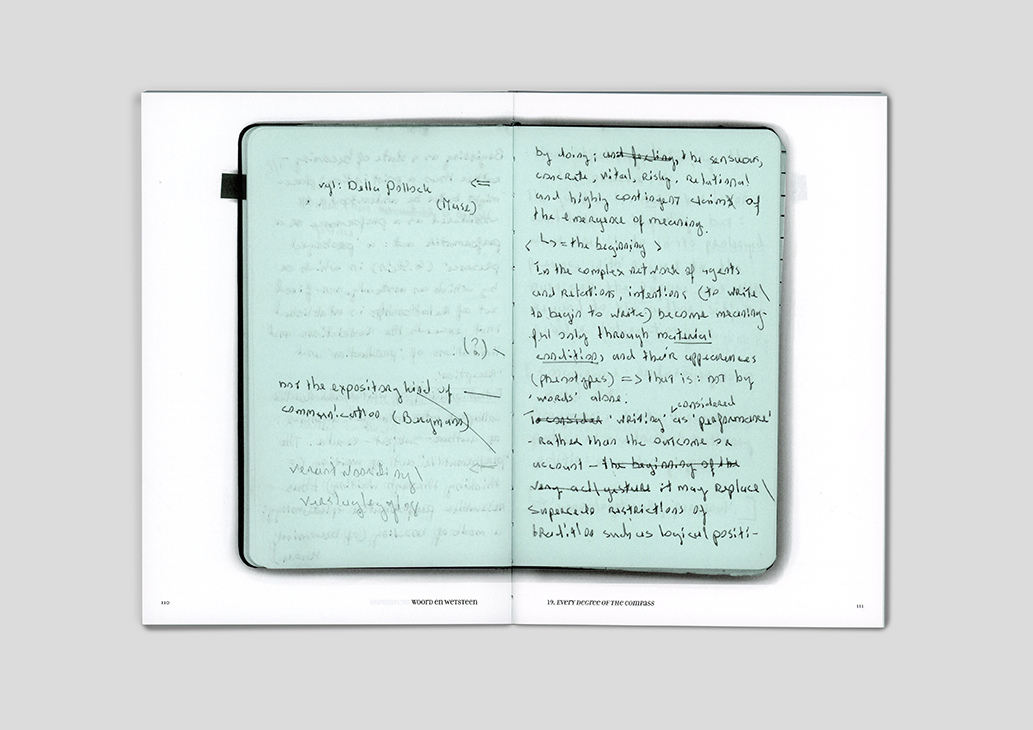 vgl: Della Pollock <=
(Muse)
(?)
not the expository kind of
communication (Bergmann)
verantwoording/
verslaglegging
by doing; and feeling, the sensuous,
concrete, vital, risky, relational
and highly contingent claims of
the emergence of meaning.
< ↳ = the beginning >
In the complex network of agents
and relations, intentions (to write\
to begin to write) become meaning-
ful only through material
conditions and their appearances
(phenotypes) => that is: not by
'words' alone.
considered
To consider 'writing' as 'performance'
- rather than the outcome or
account - the beginning of the
very act/gesture it may replace\
supercede restrictions of
tradition such as logical positi-
110
WOORD EN WETSTEEN
19. EVERY DEGREE OF THE COMPASS
111